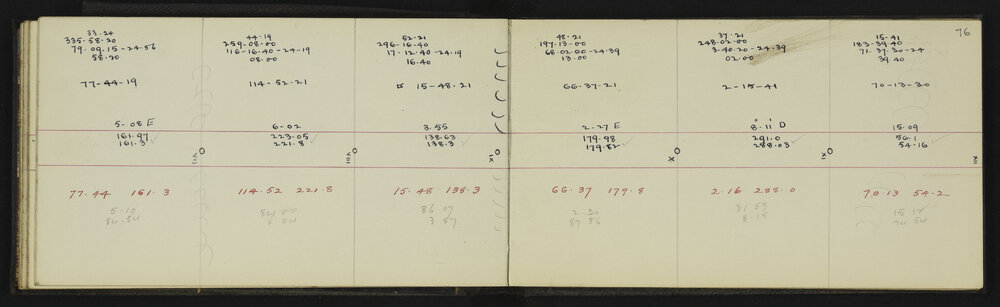 76
33.24
335-58-20
79.09.15-24.56
58.20
77-44-19
5-08 E
161.97
161.3
VII
77.44 161.3
5.10
84.54
44.19
259.08.00
116-16.40-24-19
08.00
114-52-21
6-02
223.05
221.8
VIII
114.52 221.8
84 00
6 04
52-21
296-16-40
17-12.40-24.19
16.40
15-48.21
3.55
138.63
138.3
IX
15.48 138.3
86 07
3 57
48-21
197-13-00
68.02.00-24.39
13.00
66-37-21
2-27 E
179.98
179.82
X
66.37 179.8
2 30
87 56
37-21
248.02-00
3-40.20-24.39
02.00
2-15-41
8-11 D
291.0
288.03
XI
2.16 288.0
81 59
8.15
15.41
183-39.40
71.37.30-24
39.40
70-13-30
15.09
56.1
54.16
XII
70.13 54.2